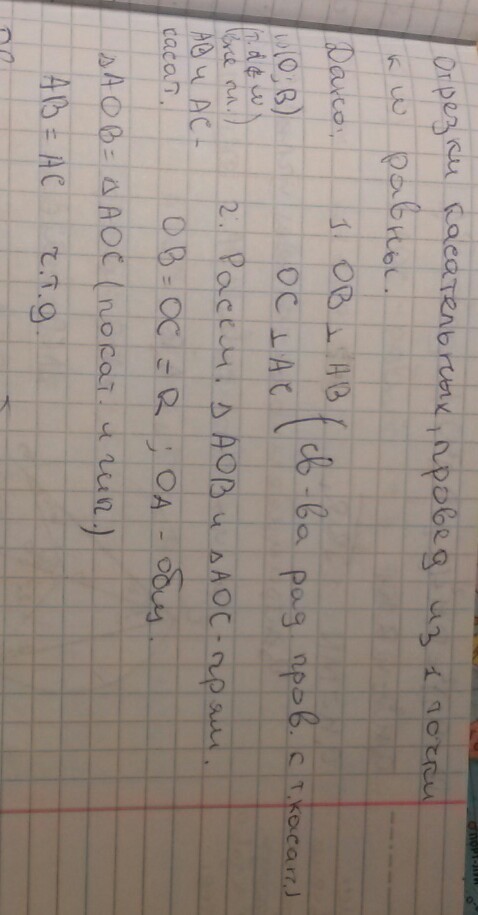 Отрезки касательных, провед из 1 точки
к w равны.
Дано: 1. OB ⊥ AB
w(O; B) OC ⊥ AC (св-ва рад пров. с т. касат.)
(вне пл.)
AB и AC - 2. Рассм. △AOB и △AOC - прям.
касат. OB = OC = R ; OA - общ.
△AOB = △AOC (по кат. и гип.)
AB = AC ч.т.д.